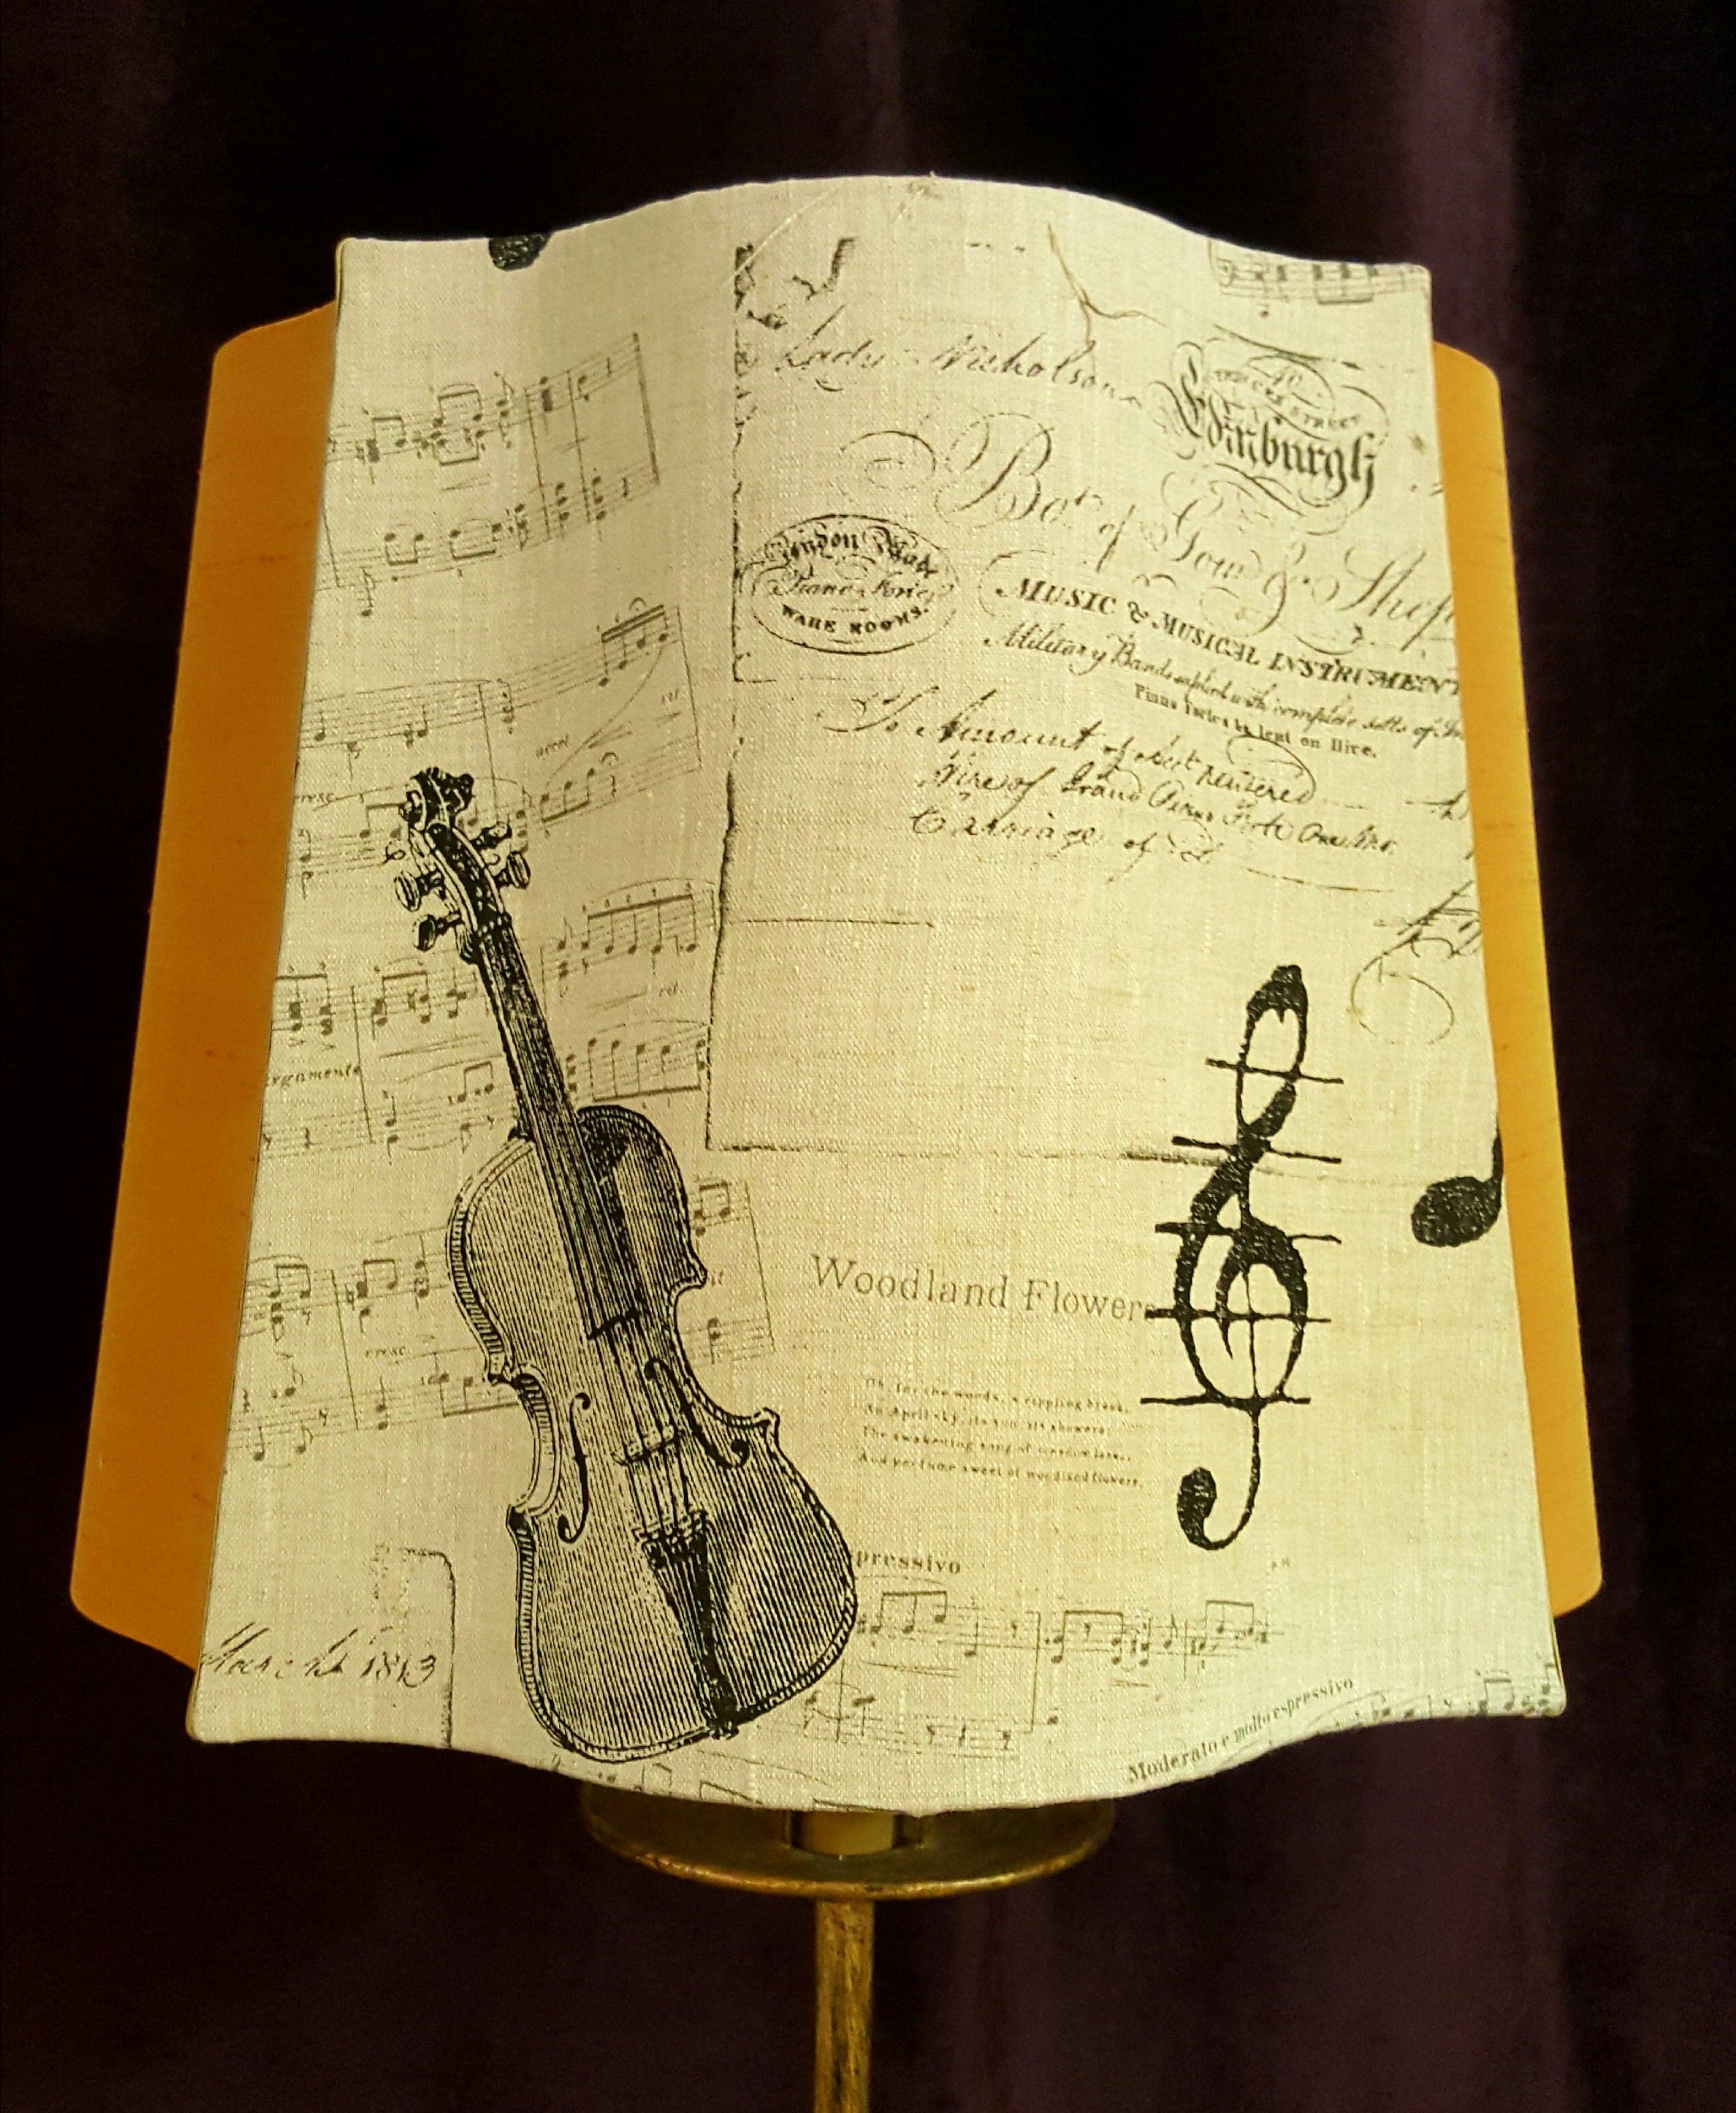 Lady Nicholson
40
STREET
Edinburgh
Bot. of Gow & Shep
London Made
Piano Fortes
WARE ROOMS.
MUSIC & MUSICAL INSTRUMENT
Military Bands supplied with complete setts of
Piano Fortes lent on Hire.
To Amount of
Hire of Grand Piano Forte
Carriage of
rit.
cresc.
rit.
argamente
cresc.
Woodland Flowers
Oh, for the woods, a rippling brook,
An April sky, its sun, its showers
The awakening song of
And perfume sweet of woodland flowers.
pressivo
March 1813
Moderato e molto espressivo